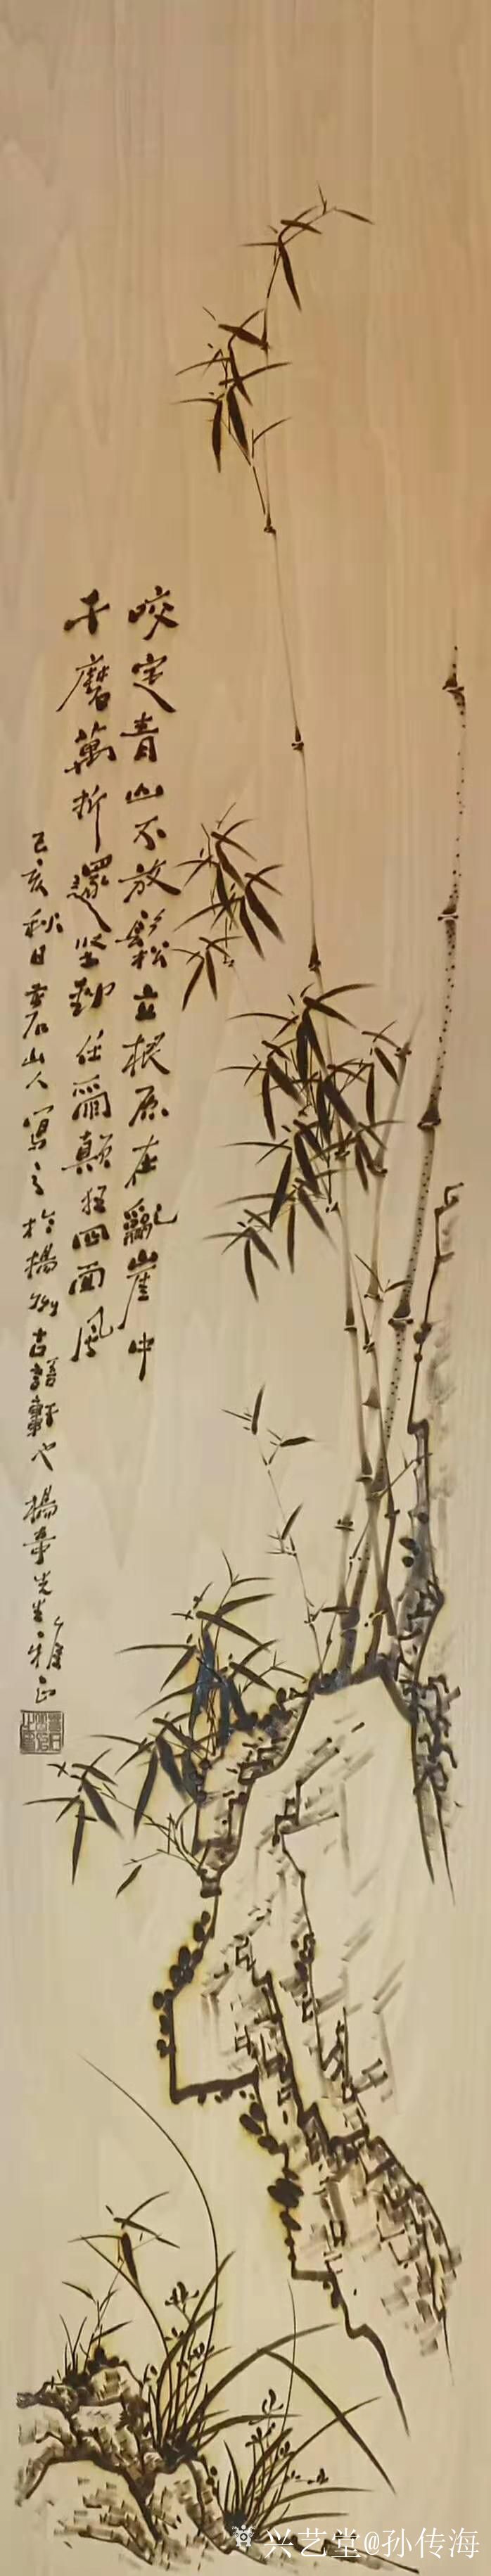 咬定青山不放鬆立根原在亂崖中
千磨萬折還堅勁任爾顛狂四面風
己亥秋日 山人寫之於揚州古 軒也 楊 先生雅正
兴艺堂@孙传海